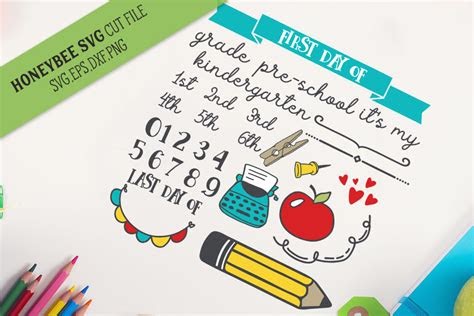 HONEYBEE SVG CUT FILE
SVG,EPS,DXF,PNG
FIRST DAY OF
grade pre-school it's my
kindergarten
1st 2nd 3rd
4th 5th 6th
0 1 2 3 4
5 6 7 8 9
LAST DAY OF